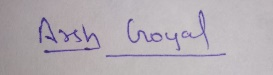 Arsh Goyal